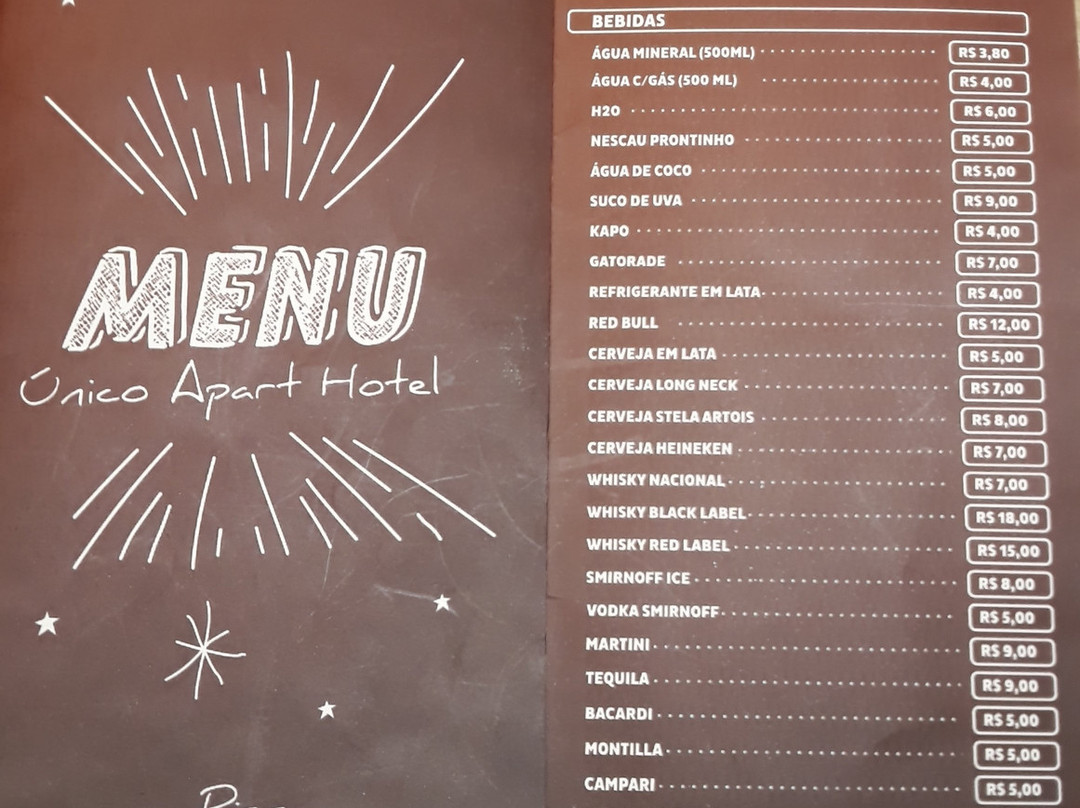 MENU
Único Apart Hotel
BEBIDAS
ÁGUA MINERAL (500ML) R$ 3,80
ÁGUA C/GÁS (500 ML) R$ 4,00
H2O R$ 6,00
NESCAU PRONTINHO R$ 5,00
ÁGUA DE COCO R$ 5,00
SUCO DE UVA R$ 9,00
KAPO R$ 4,00
GATORADE R$ 7,00
REFRIGERANTE EM LATA R$ 4,00
RED BULL R$ 12,00
CERVEJA EM LATA R$ 5,00
CERVEJA LONG NECK R$ 7,00
CERVEJA STELA ARTOIS R$ 8,00
CERVEJA HEINEKEN R$ 7,00
WHISKY NACIONAL R$ 7,00
WHISKY BLACK LABEL R$ 18,00
WHISKY RED LABEL R$ 15,00
SMIRNOFF ICE R$ 8,00
VODKA SMIRNOFF R$ 5,00
MARTINI R$ 9,00
TEQUILA R$ 9,00
BACARDI R$ 5,00
MONTILLA R$ 5,00
CAMPARI R$ 5,00